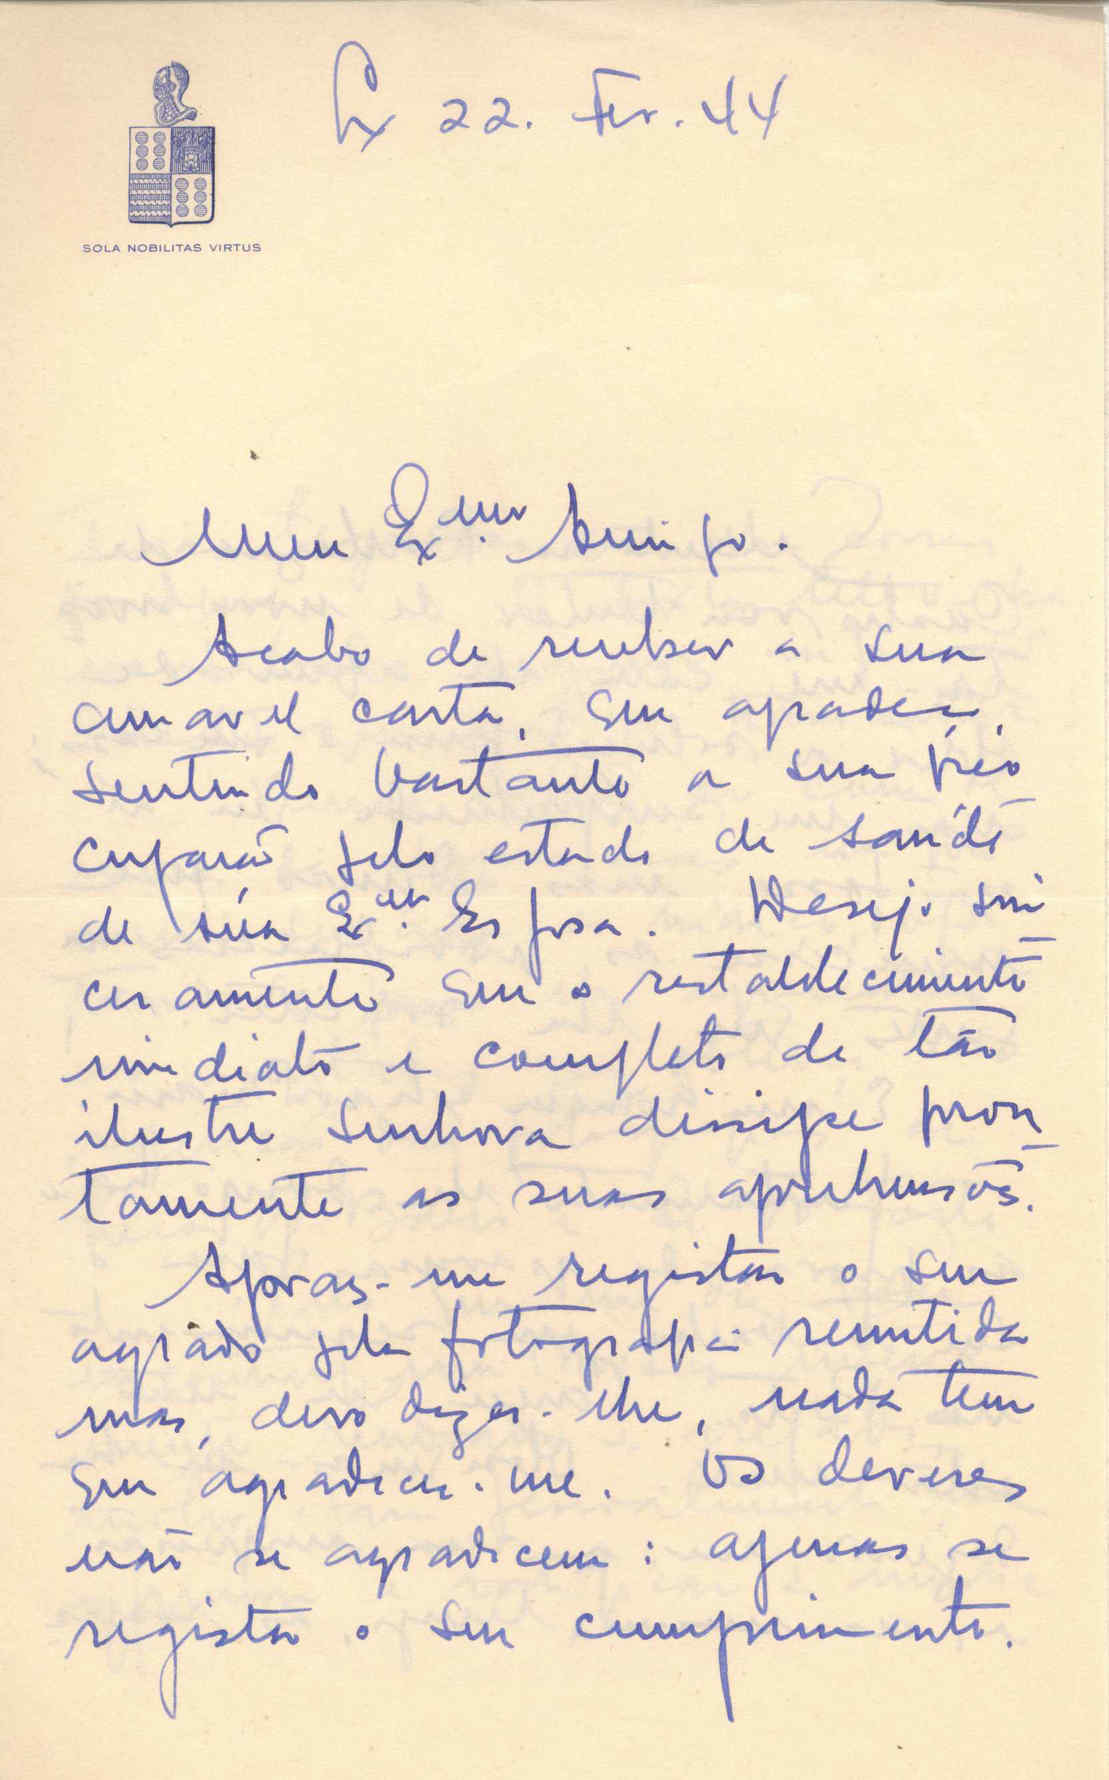 Lx 22. Fev. 44
SOLA NOBILITAS VIRTUS
Meu Exmo. Amigo.
Acabo de receber a sua
amavel carta, que agradeço,
sentindo bastante a sua preo
cupação pelo estado de saúde
de sua Exma. Esposa. Desejo sin
ceramente que o restabelecimento
imediato e completo de tão
ilustre Senhora dissipe pron
tamente as suas apreensões.
Apraz-me registar o seu
agrado pela fotografia remetida
mas, devo dizer-lhe, nada tem
que agradecer-me. Os deveres
não se agradecem: apenas se
regista o seu cumprimento.